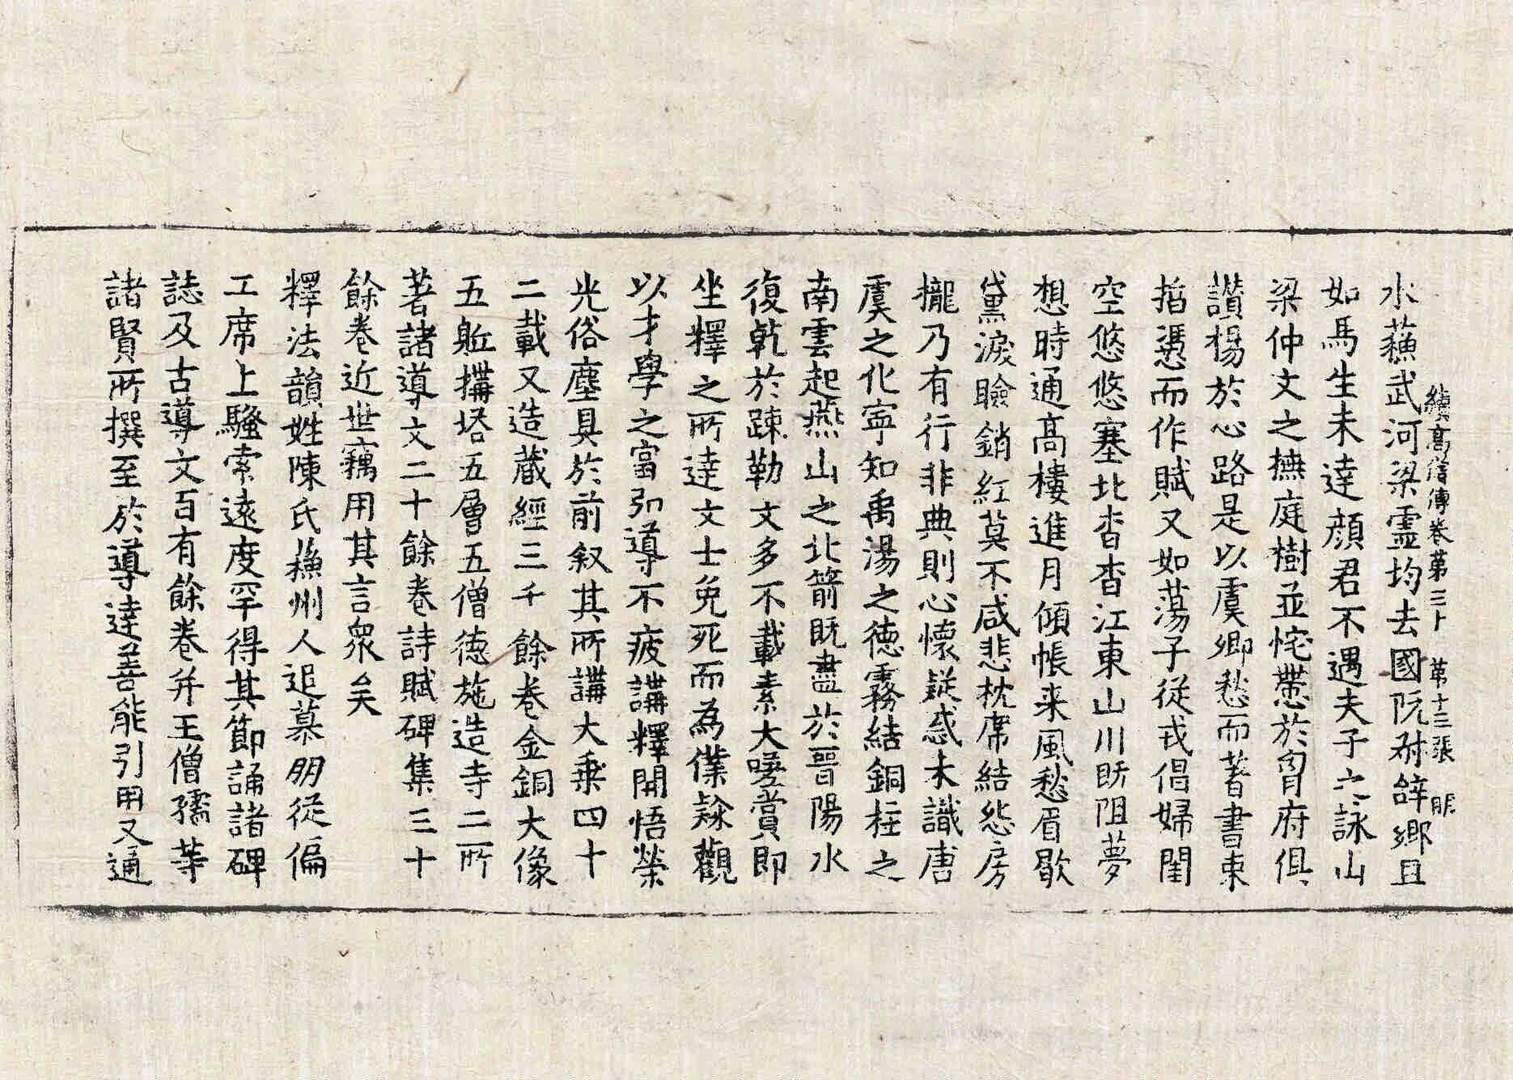 續高僧傳卷第三十　第十三張　眠
水蘓武河梁霊均去國阮㪀辞鄉且
如馬生未達顔君不遇夫子之詠山
梁仲文之撫庭樹並恠懑於胷府俱
讚揚於心路是以虞卿愁而著書東
指憑而作賦又如蕩子従戎倡婦閨
空悠悠塞北杳杳江東山川既阻夢
想時通髙樓進月傾帳来風愁眉歇
黛淚瞼銷紅莫不咸悲枕席結怨房
櫳乃有行非典則心懷疑惑未識唐
虞之化寧知禹湯之徳霧結銅柱之
南雲起燕山之北箭既盡於晋陽水
復乾於踈勒文多不載素大嗟賞即
坐釋之所達文士免死而為僕隷觀
以才學之富弘導不疲講釋開悟榮
光俗塵具於前叙其所講大乗四十
二載又造蔵經三千餘卷金銅大像
五軀搆塔五層五僧徳施造寺二所
著諸導文二十餘卷詩賦碑集三十
餘卷近世竊用其言衆矣
釋法韻姓陳氏蘓州人追慕朋従偏
工席上騷索遠度罕得其節誦諸碑
誌及古導文百有餘卷并王僧孺等
諸賢所撰至於導達善能引用又通